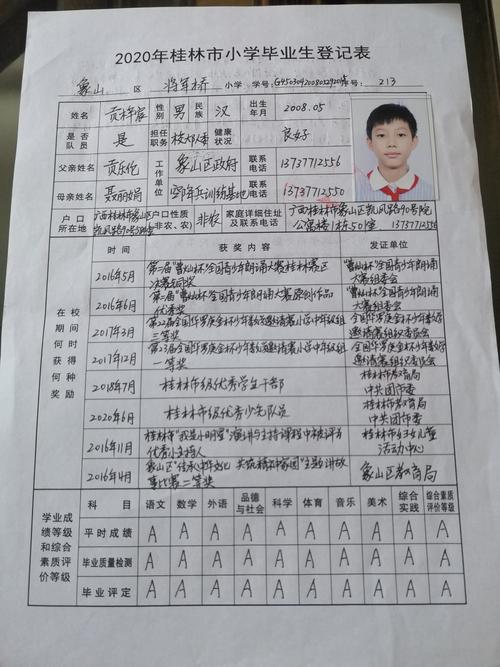 2020年桂林市小学毕业生登记表
象山 区 将军桥 小学 学号: 座号: 213
姓名 性别 男 民族 汉 出生年月 2008.05
是否队员 是 担任职务 校大队委 健康状况 良好
父亲姓名 贡乐伦 工作单位 象山区政府 联系电话 13737712556
母亲姓名 聂丽娟 训练基地 联系电话 13737712550
户口所在地 广西桂林市象山区凯风路90号 户口性质(非农、农) 非农 家庭详细住址及联系电话 广西桂林市象山区凯风路90号院公寓楼1栋501室 13737712556
在校期间何时获得何种奖励
时间 获奖内容 发证单位
2016年5月 第二届“曹灿杯”全国青少年朗诵大赛桂林赛区 “曹灿杯”全国青少年朗诵大赛组委会
2016年6月 第二届“曹灿杯”全国青少年朗诵大赛原创作品优秀奖 “曹灿杯”全国青少年朗诵大赛组委会
2017年3月 第22届全国华罗庚金杯少年数学邀请赛小学中年级组三等奖 全国华罗庚金杯少年数学邀请赛组织委员会
2017年12月 第23届全国华罗庚金杯少年数学邀请赛小学中年级组一等奖 全国华罗庚金杯少年数学邀请赛组织委员会
2018年7月 桂林市级优秀学生干部 桂林市教育局 中共团市委
2020年6月 桂林市级优秀少先队员 桂林市教育局 中共团市委
2016年11月 桂林市“我是小明星”演讲与主持课程中被评为优秀小主持人 桂林市妇女儿童活动中心
2016年4月 象山区“传承中华文化 共筑精神家园”主题讲故事比赛二等奖 象山区教育局
学业成绩等级和综合素质评价等级
科目 语文 数学 外语 品德与社会 科学 体育 音乐 美术 综合实践 综合素质评价等级
平时成绩 A A A A A A A A A A
毕业质量检测 A A A A A A A A A A
毕业评定 A A A A A A A A A A